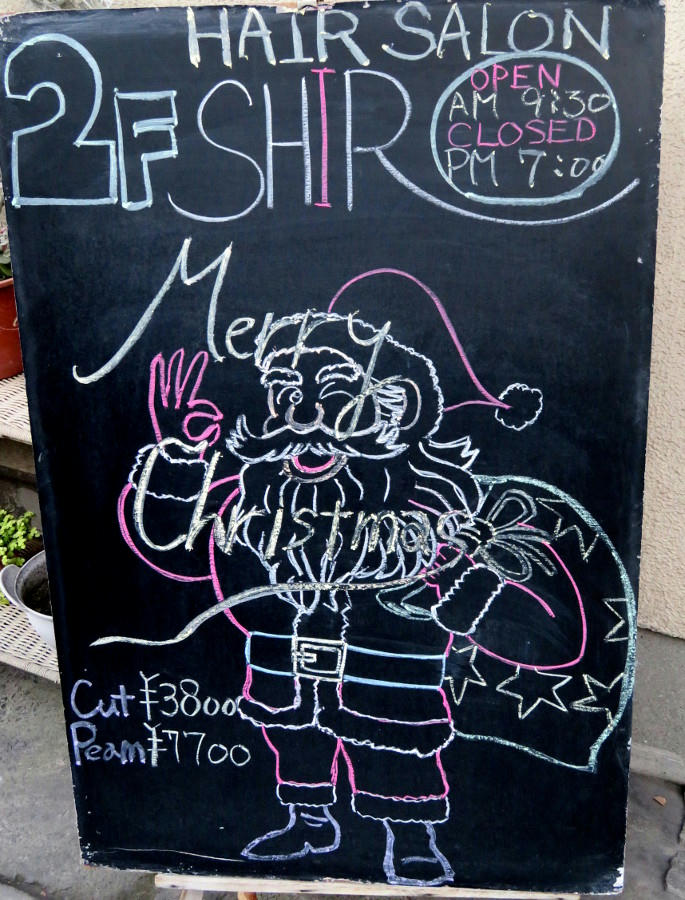 HAIR SALON
2F SHIR
OPEN
AM 9:30
CLOSED
PM 7:00
Merry
Christmas
Cut ¥3800
Peam ¥7700